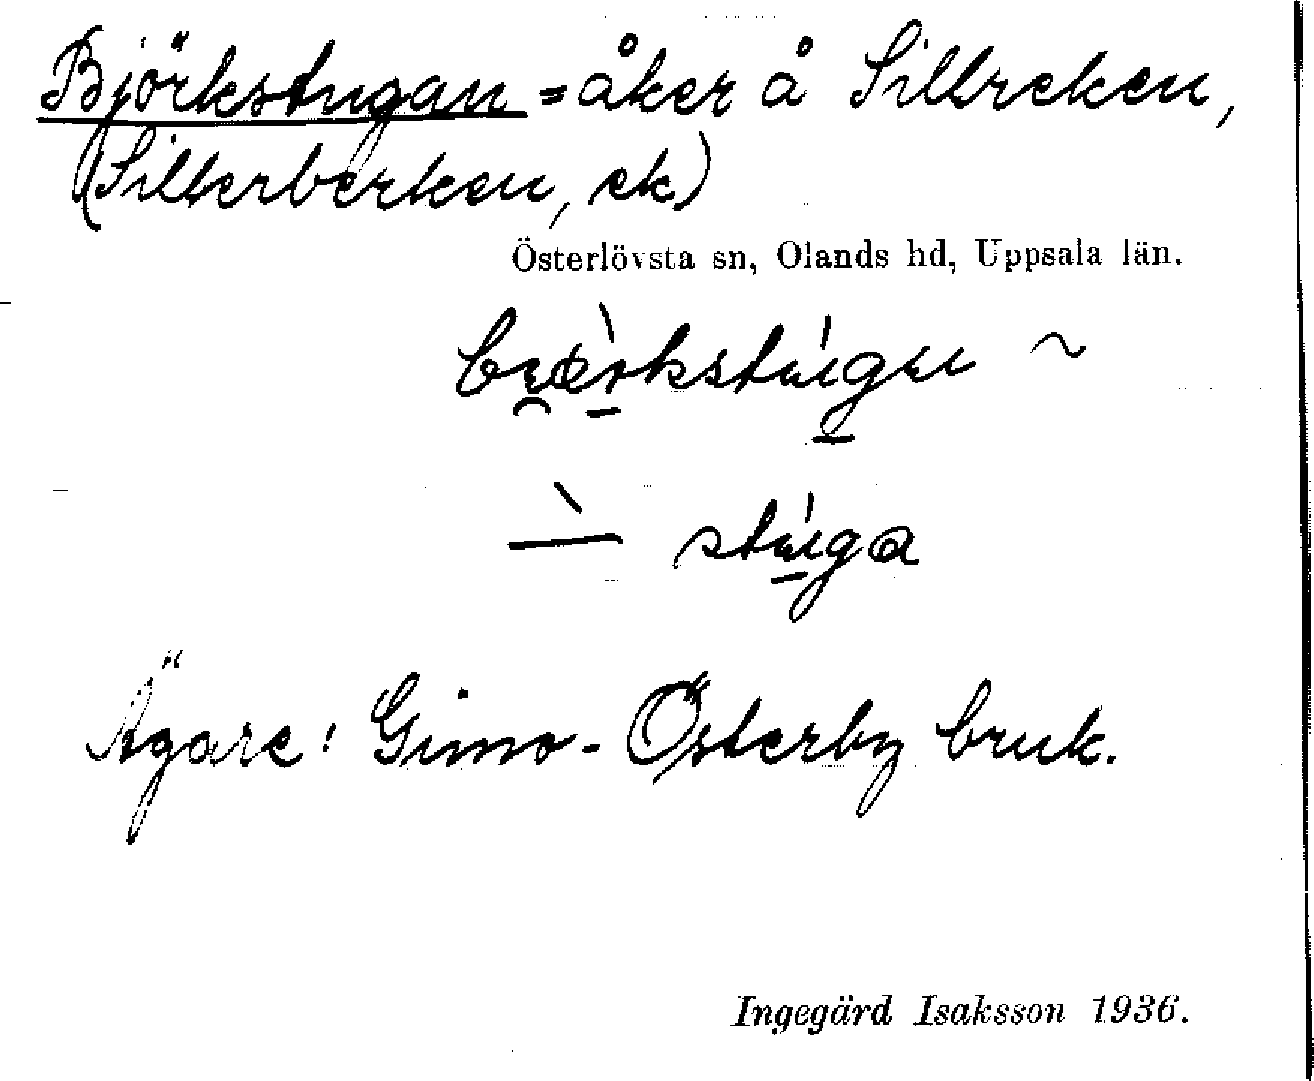 Björkstugan = åker å Sillreken,
(Sillerberken, ek)
Österlövsta sn, Olands hd, Uppsala län.
stúga
Ägare: Gimo-Österby bruk.
Ingegärd Isaksson 1936.